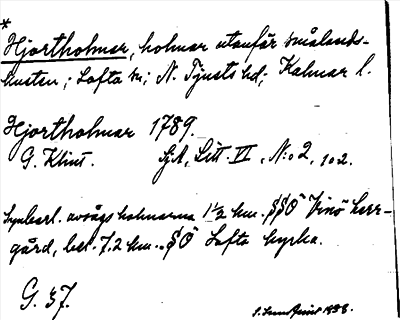 *
Hjortholmar, holmar utanför smålands-
kusten; Lofta sn; N. Tjusts hd; Kalmar l.
Hjortholmar 1789.
G. Klint. SjA, Litt. VI, N:o 2, 102.
holmarna 1½ km. SSÖ Vinö herr-
gård, bel. 7.2 km. SÖ Lofta kyrka.
G. 37.